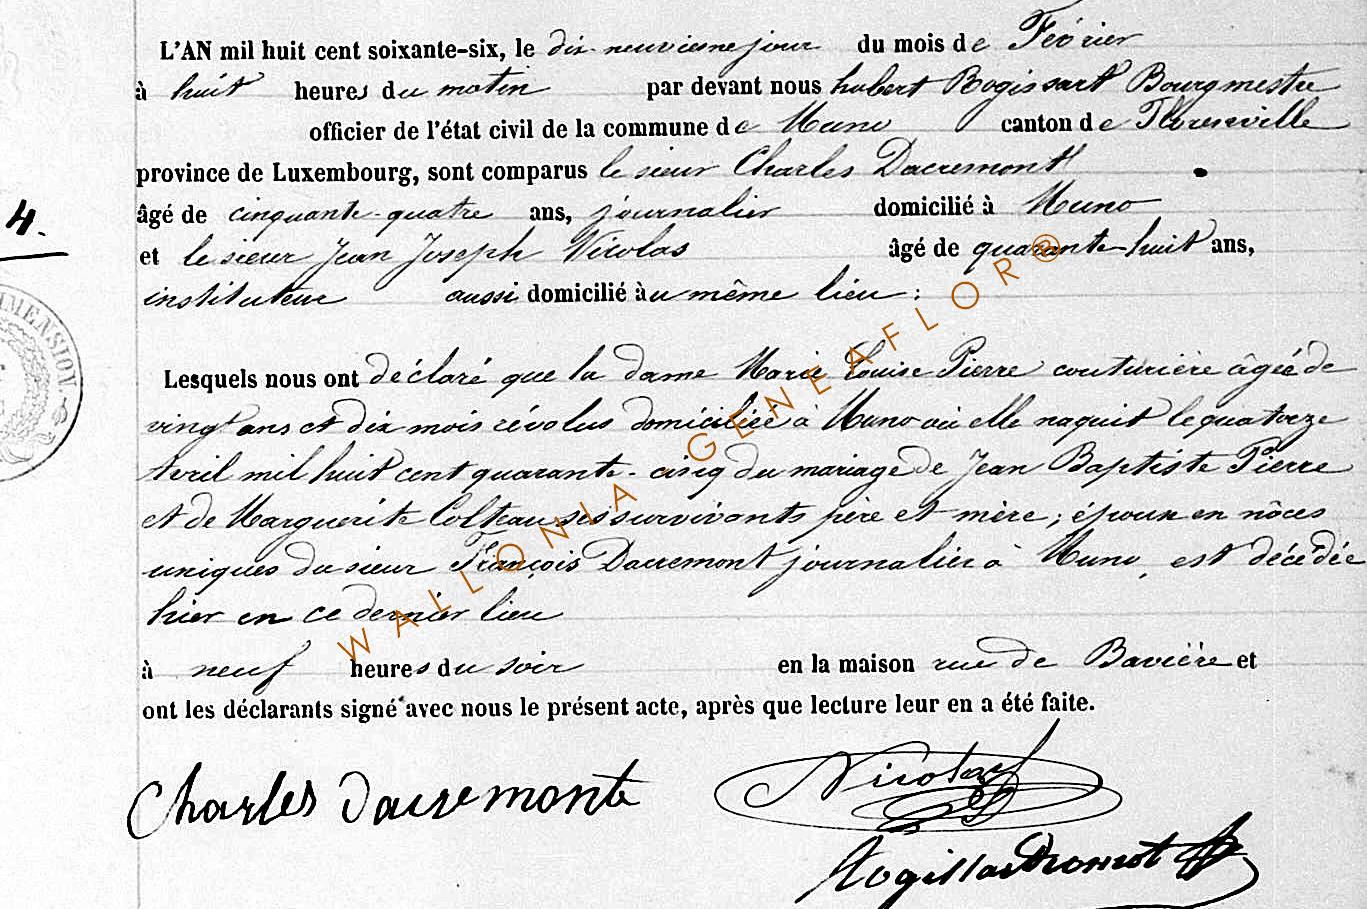 L'AN mil huit cent soixante-six, le dix-neuvième jour du mois de Février
à huit heures du matin par devant nous hubert Bogissart Bourgmestre
officier de l'état civil de la commune de Muno canton de Florenville
province de Luxembourg, sont comparus le sieur Charles Dacremont
4.
âgé de cinquante-quatre ans, journalier domicilié à Muno
et le sieur Jean Joseph Nicolas âgé de quarante-huit ans,
instituteur aussi domicilié au même lieu :
MENSION
Lesquels nous ont déclaré que la dame Marie Louise Pierre couturière âgée de
vingt ans et dix mois révolus domiciliée à Muno où elle naquit le quatorze
Avril mil huit cent quarante-cinq du mariage de Jean Baptiste Pierre
et de Marguerite Colteau ses survivants père et mère ; époux en nôces
uniques du sieur François Dacremont journalier à Muno, est décédée
hier en ce dernier lieu
à neuf heures du soir en la maison rue de Bavière et
ont les déclarants signé avec nous le présent acte, après que lecture leur en a été faite.
Charles dacremont
Nicolas
WALLONIA GENEAFLOR®